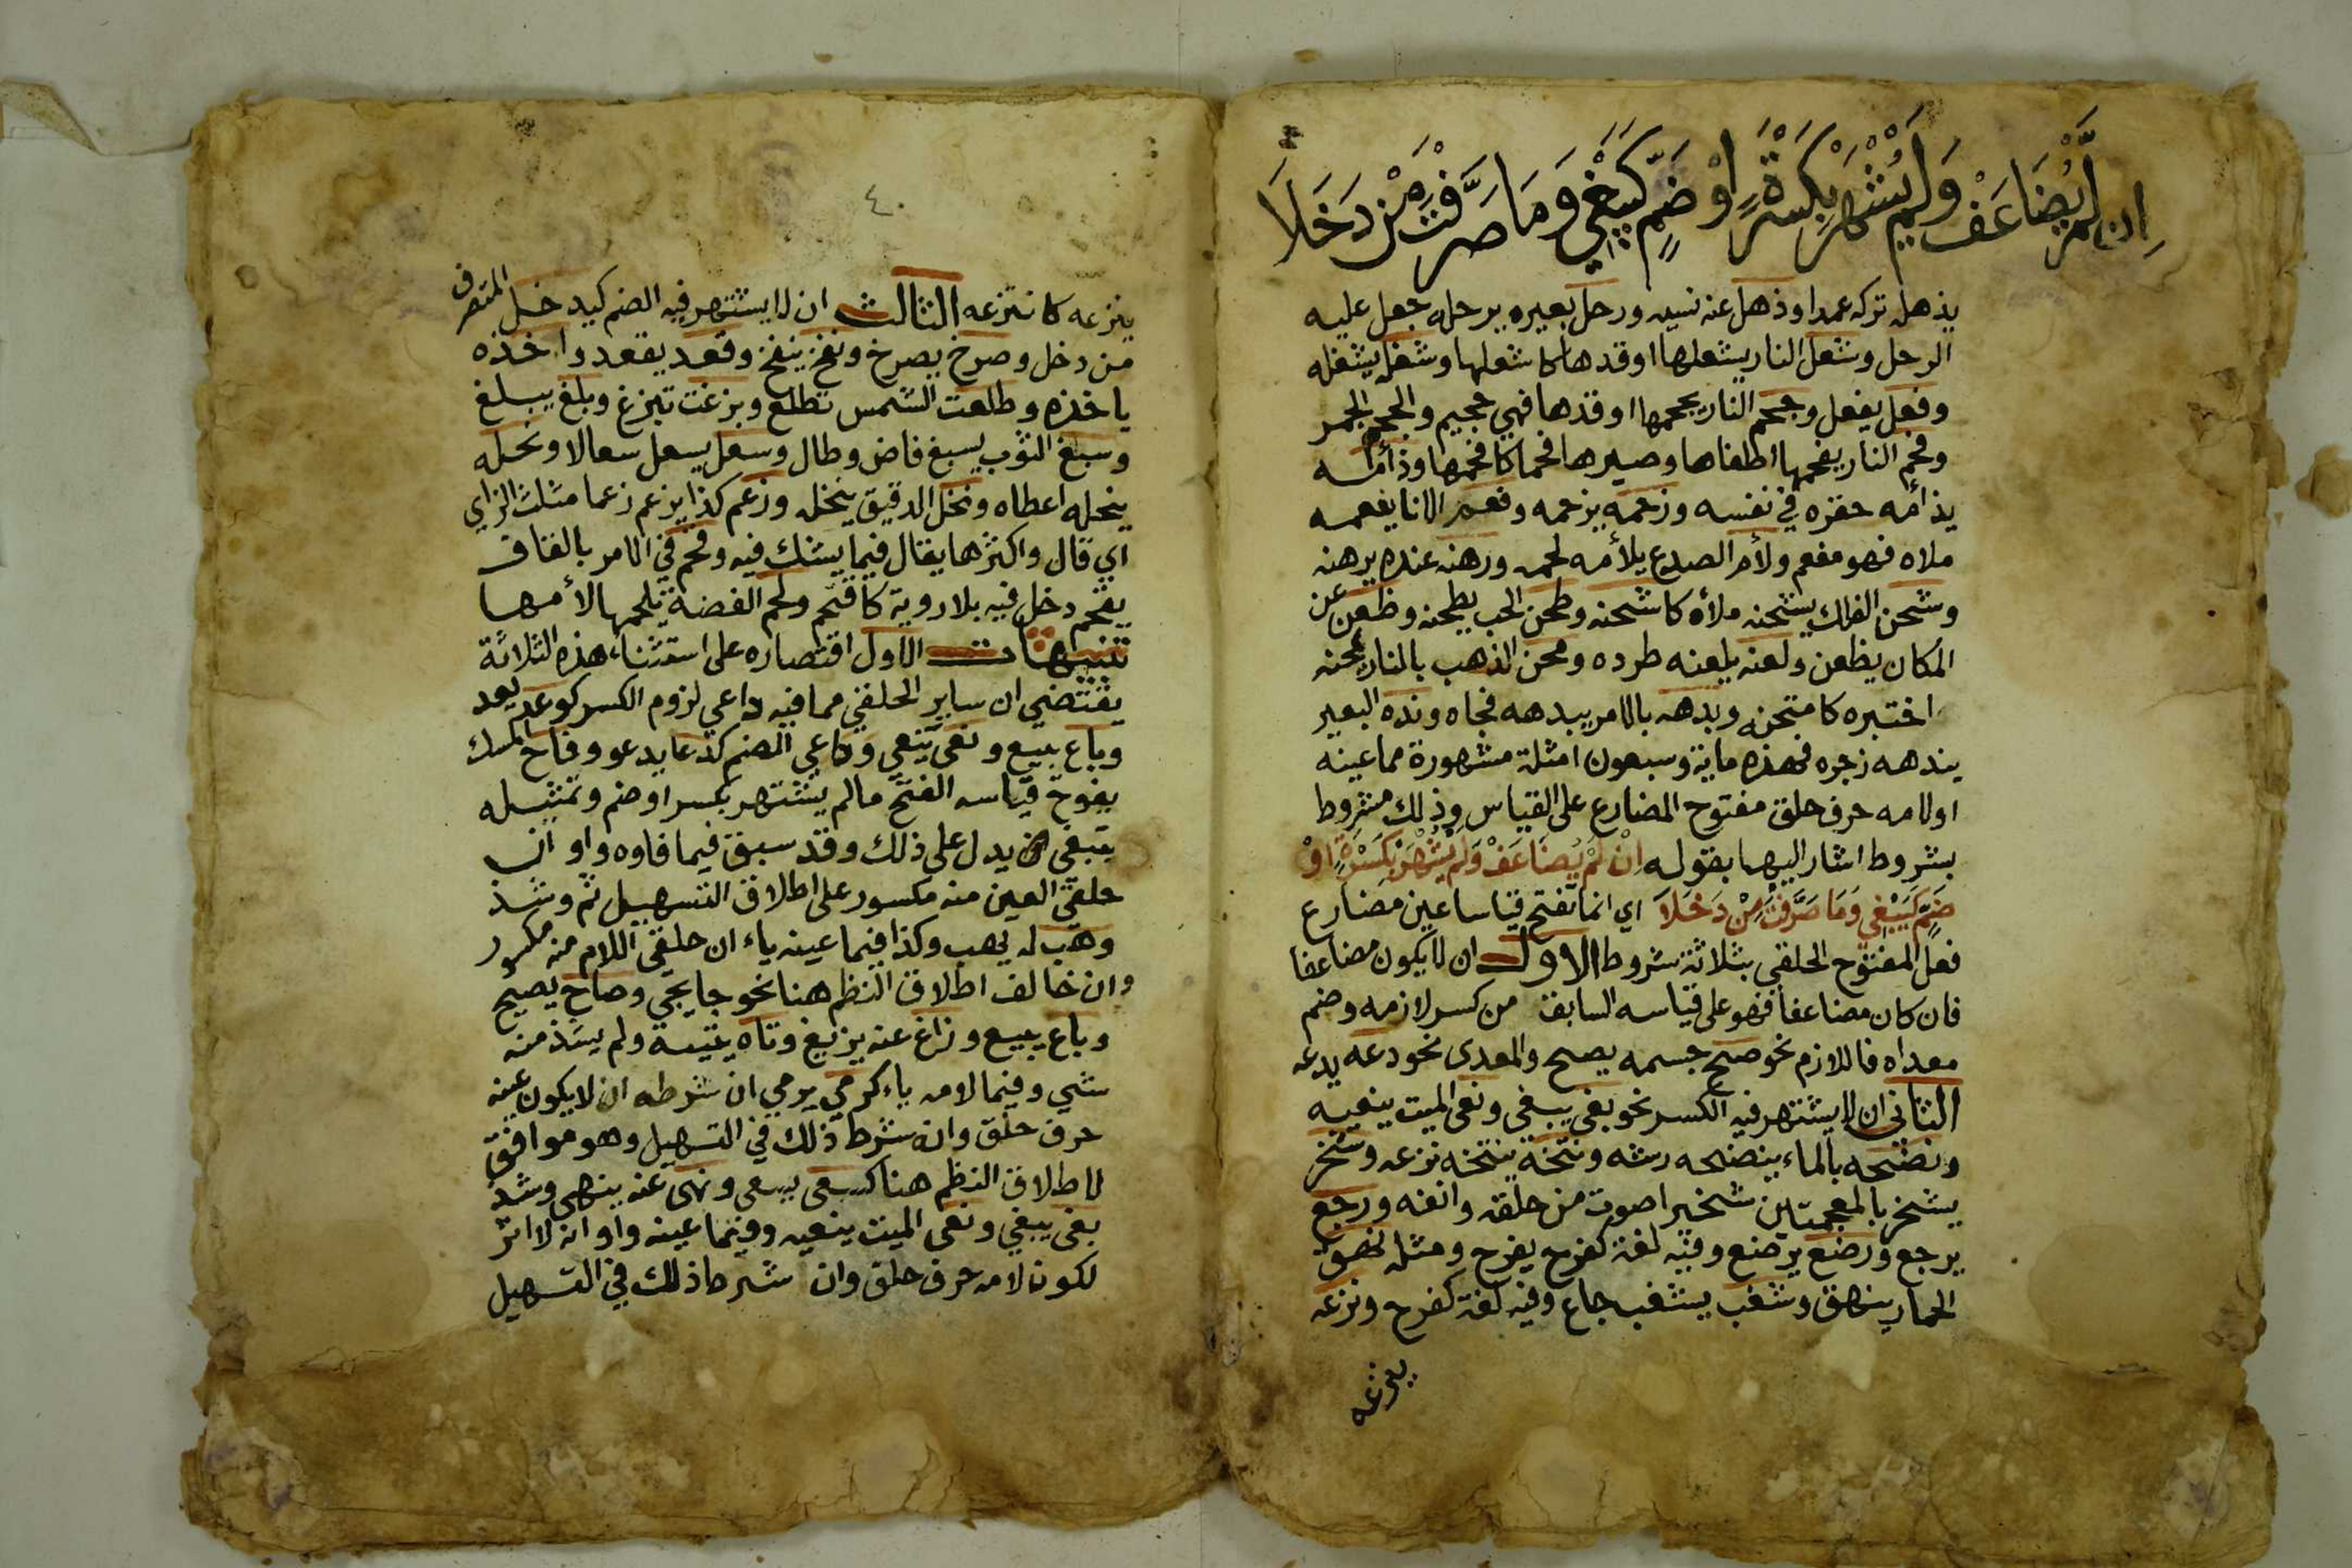 اِن لَّمْ يُضَاعَفْ وَلَمْ يُشْهَرْ بِكَسْرَةٍ اوْ ضَمٍّ كَيَبْغِي وَمَا صَرَّفْتَ مِنْ دَخَلَا
يذهله تركه عمدا وذهل عنه نسيه ورحل بعيره يرحله جعل عليه
الرحل وشعل النار يشعلها اوقدها كاشعلها وشغل يشغله
وفعل يفعل وجحم النار يجحمها اوقدها فهي جحيم والجحم الجمر
وفحم النار يفحمها اطفاها وصيرها فحما كافحمها وذأمه
يذأمه حقره في نفسه وزحمه يزحمه وفعم الانا يفعمه
ملاه فهو مفعم ولأم الصدع يلأمه لحمه ورهنه عنده يرهنه
وشحن الفلك يشحنه ملأه كاشحنه وطحن الحب يطحنه وظعن عن
المكان يظعن ولعنه يلعنه طرده ومحن الذهب بالنار يمحنه
اختبره كامتحنه وبدهه بالامر يبدهه فجاه ونده البعير
يندهه زجره فهذه ماية وسبعون امثلة مشهورة مما عينه
اولامه حرف حلق مفتوح المضارع على القياس وذلك مشروط
بشروط اشار اليها بقوله اِنْ لَمْ يُضَاعَفْ وَلَمْ يُشْهَرْ بِكَسْرَةٍ اوْ
ضَمٍّ كَيَبْغِي وَمَا صَرَّفْتَ مِنْ دَخَلَا اي انما تفتح قياسا عين مضارع
فعل المفتوح الحلقي بثلاثة شروط الاول ان لا يكون مضاعفا
فان كان مضاعفا فهو على قياسه السابق من كسر لازمه وضم
معداه فاللازم نحو صح جسمه يصح والمعدى نحو دعه يدعه
الثاني ان لا يشتهر فيه الكسر نحو بغى يبغي ونعى الميت ينعيه
ونضحه بالماء ينضحه رشه ونتخه ينتخه نزعه وشخر
يشخر بالمعجمتين شخيرا صوت من حلقه وانفه ورجع
يرجع ورضع يرضع وفيه لغة كفرح يفرح ومثله نهق
الحمار ينهق وشغب يشغب جاع وفيه لغة كفرح ونزعه
ينزعه
٤٠
ينزعه كانتزعه الثالث ان لا يشتهر فيه الضم كيدخل المتصرف
من دخل وصرخ يصرخ ونفخ ينفخ وقعد يقعد واخذه
ياخذه وطلعت الشمس تطلع وبزغت تبزغ وبلغ يبلغ
وسبغ الثوب يسبغ فاض وطال وسعل يسعل سعالا ونحله
ينحله اعطاه ونخل الدقيق ينخله وزعم كذا يزعم زعما مثلث الزاي
اي قال واكثرها يقال فيما يشك فيه وقحم في الامر بالقاف
يقحم دخل فيه بلا روية كاقتحم ولحم الفضة يلحمها لأمها
تنبيهات الاول اقتصاره على استثناء هذه الثلاثة
يقتضي ان ساير الحلقي مما فيه داعي لزوم الكسر كوعد يعد
وباع يبيع ونعى ينعي وداعي الضم كدعا يدعو وفاح المسك
يفوح قياسه الفتح ما لم يشتهر بكسر او ضم وتمثيله
يبغي يدل على ذلك وقد سبق فيما فاوه واو ان
حلقي العين منه مكسور على اطلاق التسهيل ثم وشذ
وهب له يهب وكذا فيما عينه ياء ان حلقي اللام منه مكسور
وان خالف اطلاق النظم هنا نحو جا يجي وصاح يصيح
وباع يبيع وزاغ عنه يزيغ وتاه يتيه ولم يشذ منه
شي وفيما لامه ياء كرمي يرمي ان شرطه ان لا يكون عينه
حرف حلق وان شرط ذلك في التسهيل وهو موافق
لاطلاق النظم هنا كسعى يسعى ونهى عنه ينهى وشذ
بغى يبغي ونعى الميت ينعيه وفيما عينه واو انه لا اثر
لكون لامه حرف حلق وان شرط ذلك في التسهيل